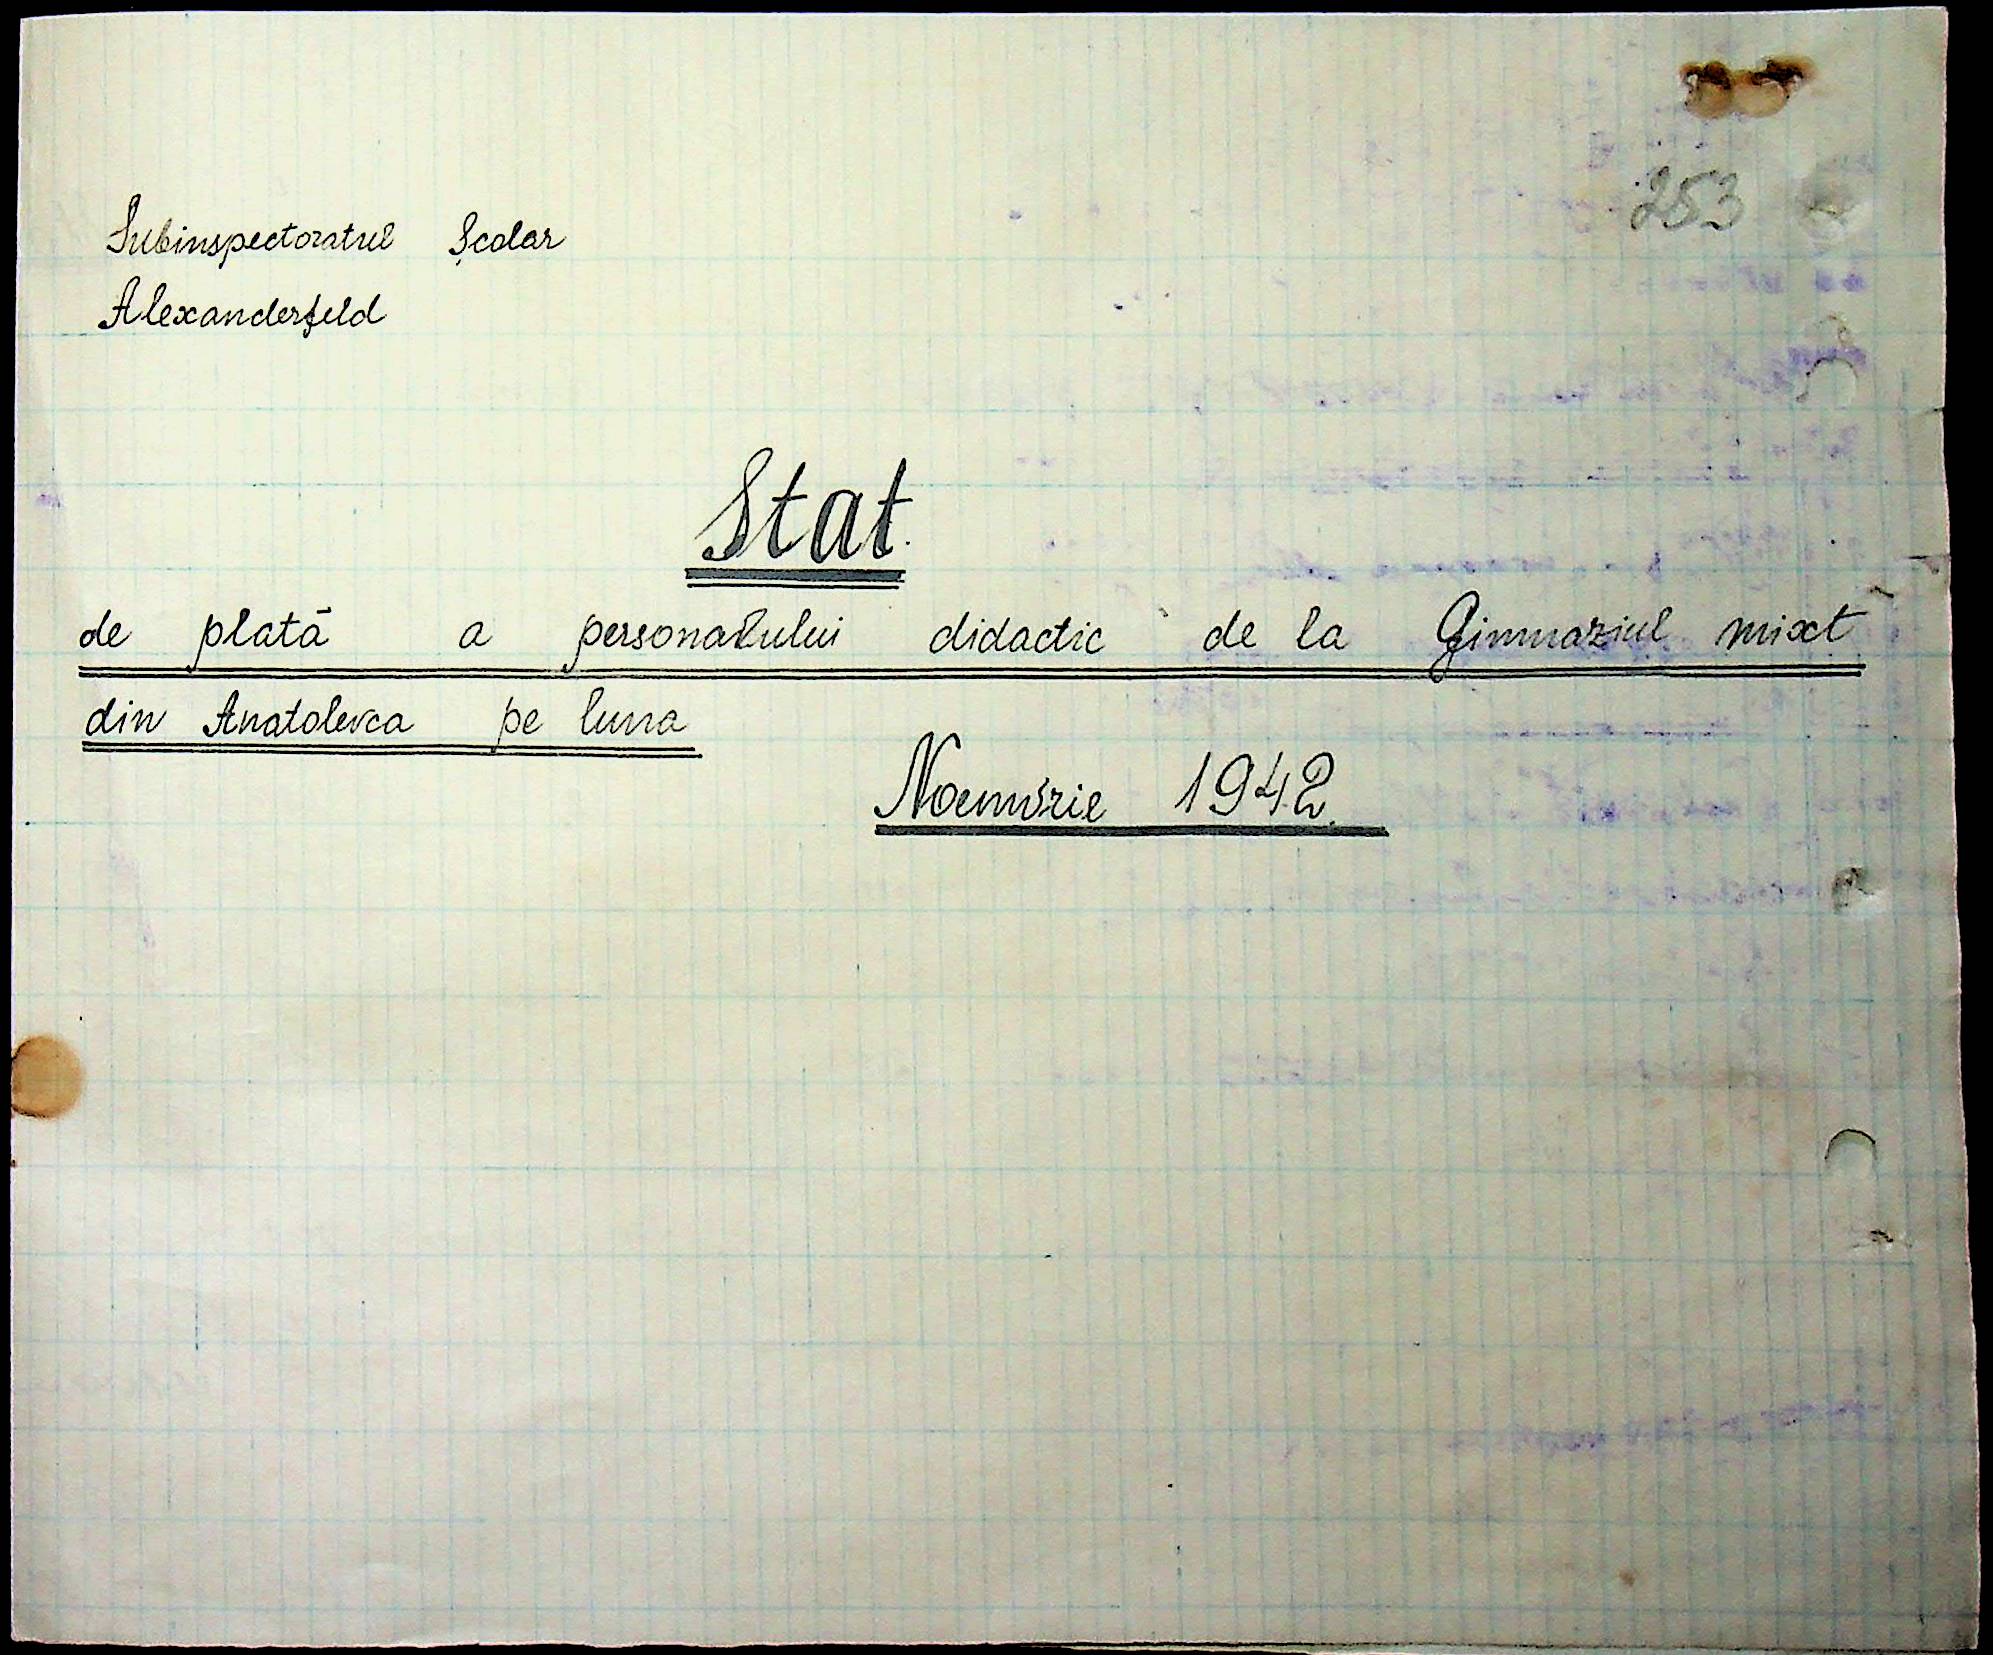 253
Subinspectoratul Școlar
Alexanderfeld
Stat.
de plată a personalului didactic de la Gimnaziul mixt
din Anatolevca pe luna
Noemvrie 1942.